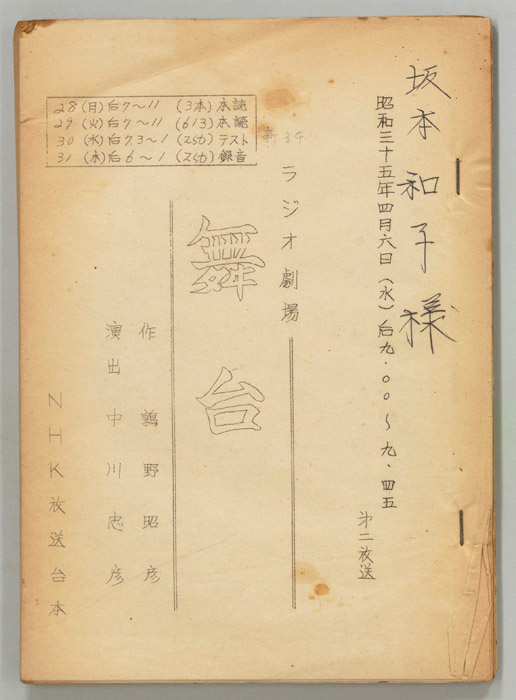 坂本和子様
昭和三十五年四月六日（水）后九・〇〇～九・四五
第二放送
28（月）后7～11 （3本）本読
29（火）后7～11 （613）本読
30（水）后7.3～1 （スタ6）テスト
31（木）后6～1 （スタ6）録音
ラジオ劇場
舞台
作 鶉野昭彦
演出 中川忠彦
NHK放送台本